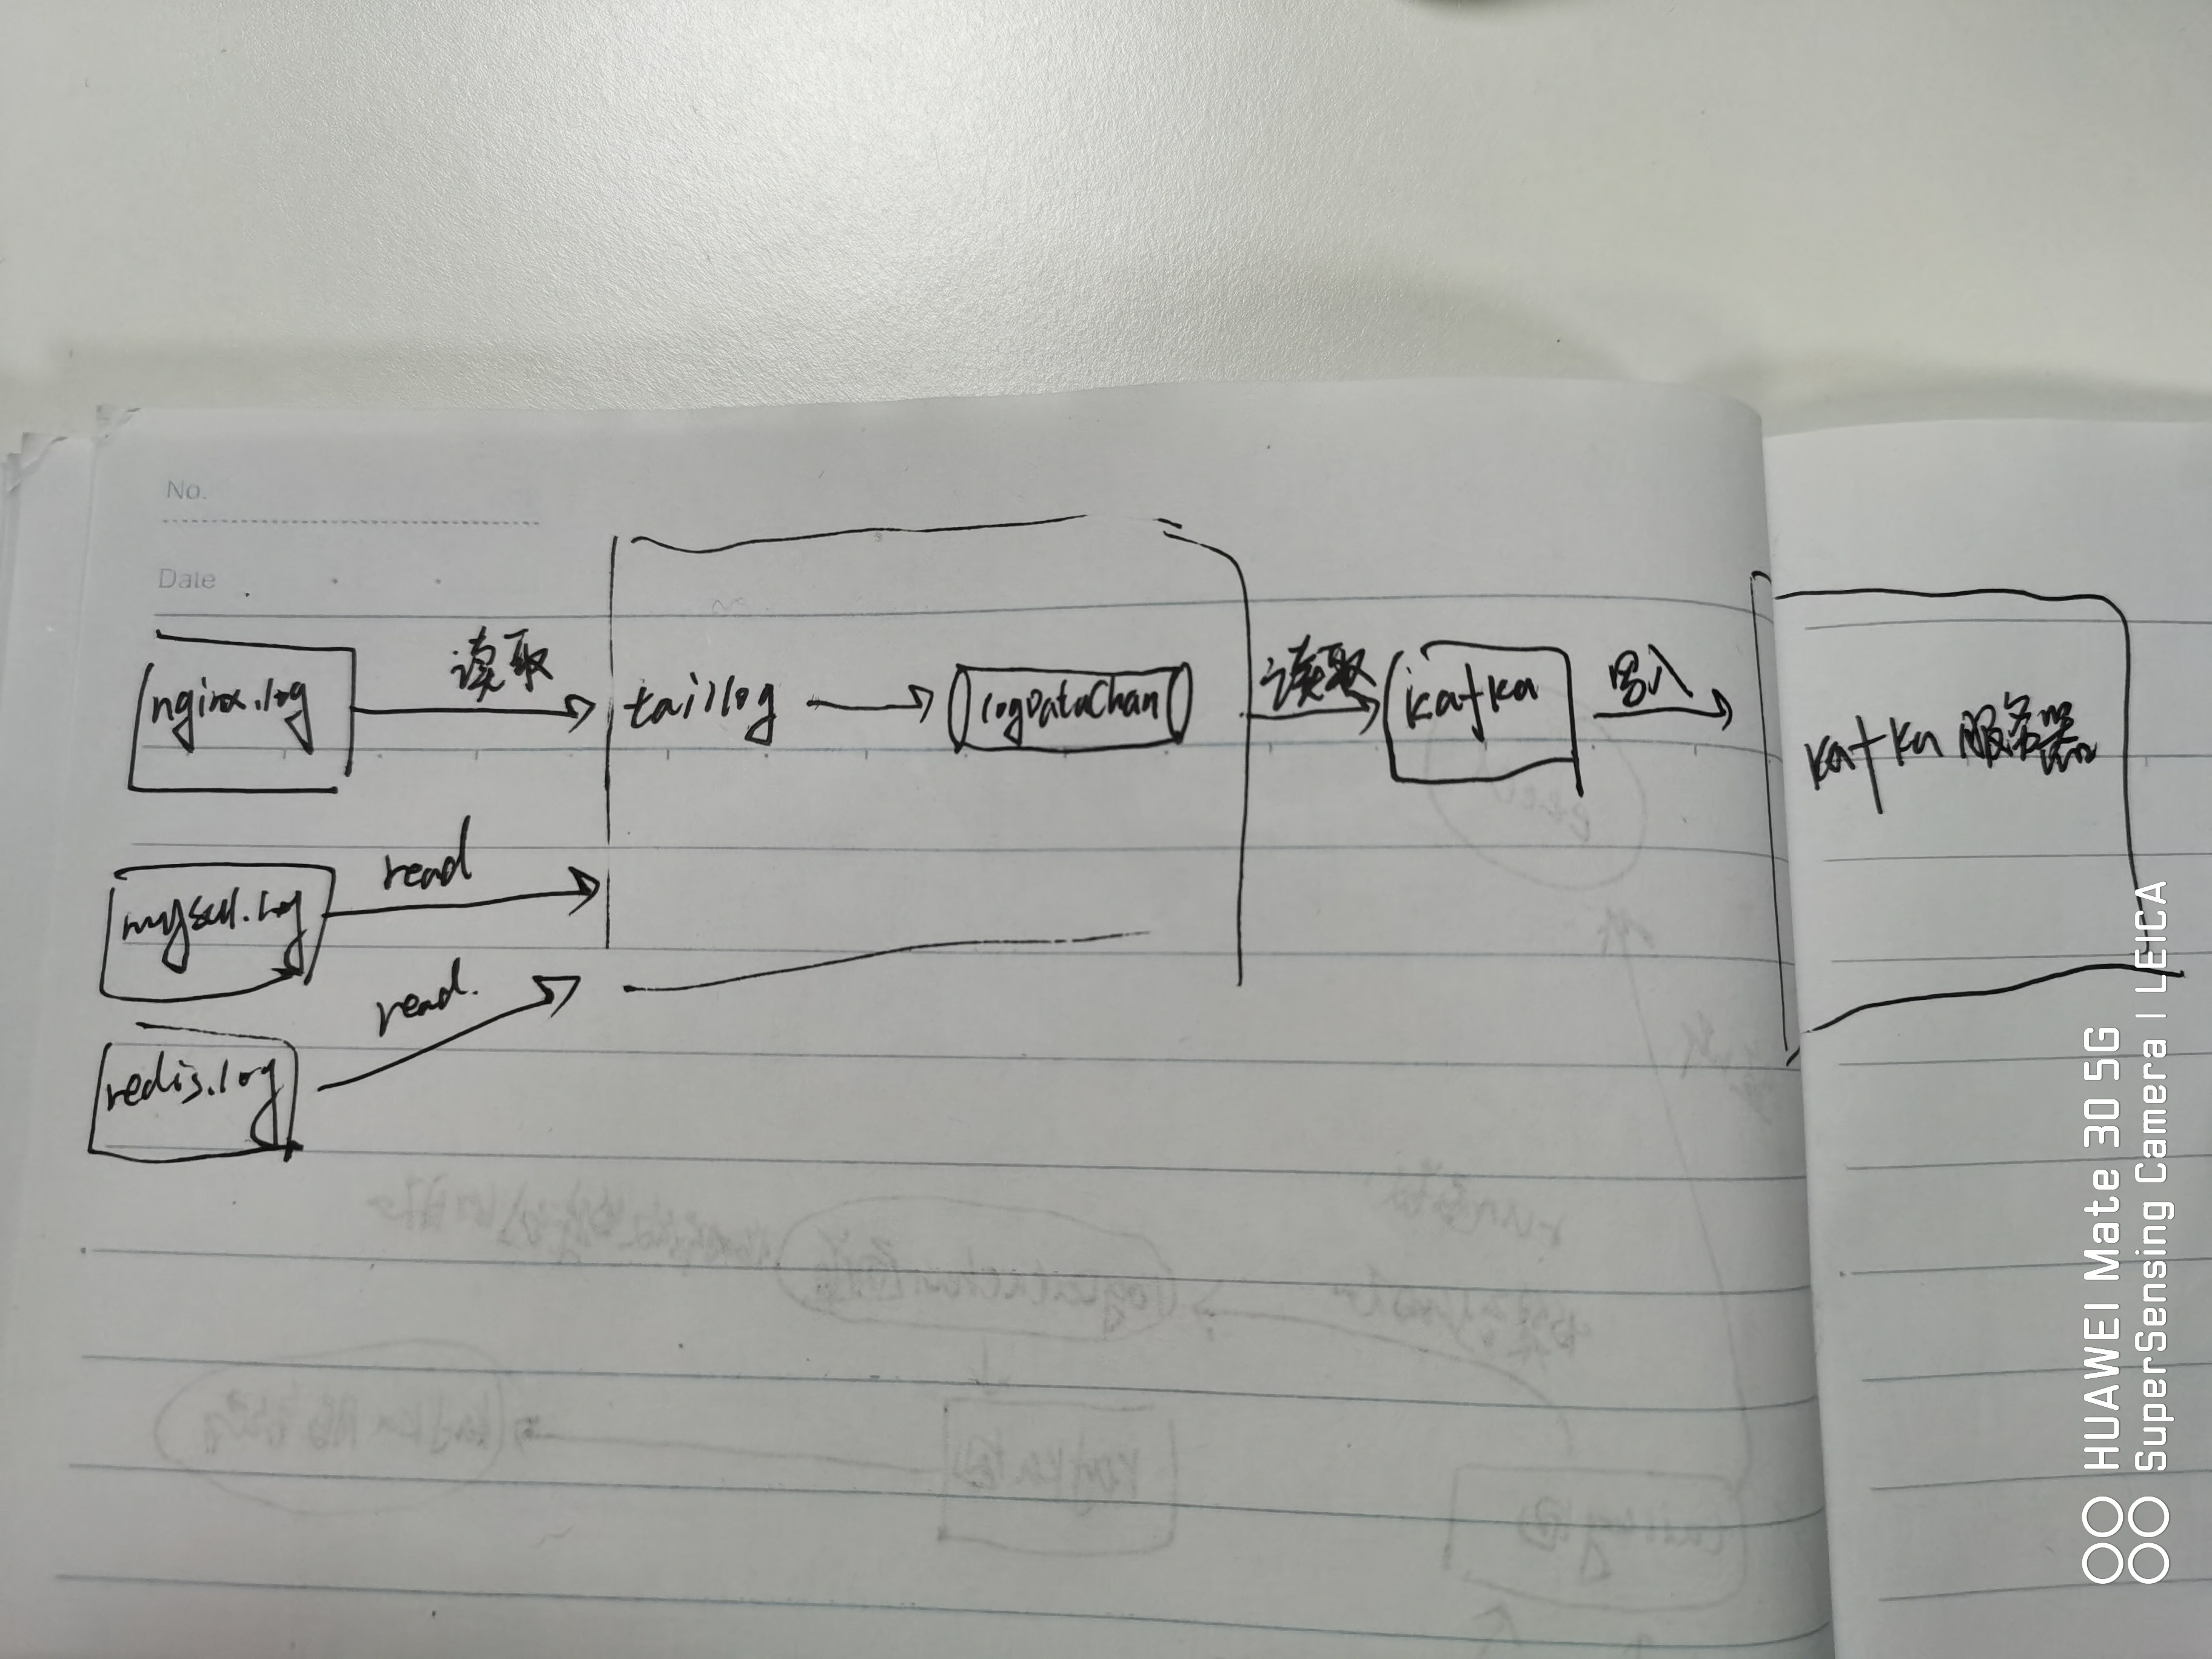 No.
Date
nginx.log 读取 taillog logDataChan 读取 kafka 写入 kafka 服务器
mysql.log read
redis.log read.
HUAWEI Mate 30 5G
SuperSensing Camera | LEICA